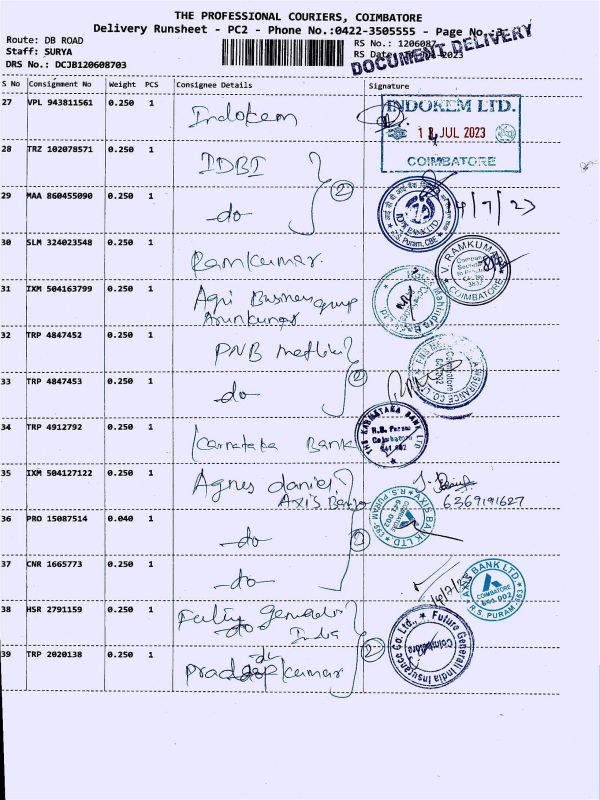 THE PROFESSIONAL COURIERS, COIMBATORE
Delivery Runsheet - PC2 - Phone No.:0422-3505555 - Page No.:3
Route: DB ROAD
Staff: SURYA
DRS No.: DCJB120608703
RS No.: 1206087
RS Date: 2023
DOCUMENT DELIVERY
S No Consignment No Weight PCS Consignee Details Signature
27 VPL 943811561 0.250 1 Indokem
INDOKEM LTD.
14 JUL 2023
COIMBATORE
28 TRZ 102078571 0.250 1 IDBI
2
29 MAA 860455090 0.250 1 -do
IDBI BANK LTD.
R.S. Puram, CBE
14/7/23
30 SLM 324023548 0.250 1 Ramkumar.
V. RAMKUMAR
Company
Secretary
COIMBATORE
31 IXM 504163799 0.250 1 Agri Business group
Arunkumar
32 TRP 4847452 0.250 1 PNB metlife
2
33 TRP 4847453 0.250 1 -do
34 TRP 4912792 0.250 1 Karnataka Bank
THE KARNATAKA BANK LTD
R.S. Puram
Coimbatore
641 002
35 IXM 504127122 0.250 1 Agnes daniel
Axis Bank
6369191627
36 PRO 15087514 0.040 1 -do
AXIS BANK LTD.
R.S. PURAM
COIMBATORE
641 002
37 CNR 1665773 0.250 1 -do
14/7/23
AXIS BANK LTD.
COIMBATORE
641 002
R.S. PURAM
38 HSR 2791159 0.250 1 Future Generali
India
39 TRP 2020138 0.250 1 -do
Pradeep kumar
2
Future Generali India Insurance Co. Ltd.,
Coimbatore